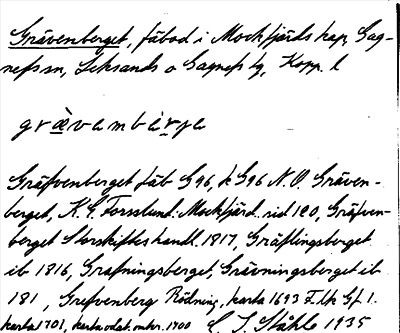 Grävenberget, fäbod i Mockfjärds kap, Gag-
nefs sn, Leksands o Gagnefs tg, Kopp. l
grævambærja
Gräfvenberget fäb G96, k G96 N.O. Gräven-
berget, K. E. Forsslund. Mockfjärd. sid 120, Gräfven-
berget Storskifteshandl. 1817, Gräflingsberget
ib 1816, Grafningsberget, Grävningsberget ib
181, Grefvenberg Rödning, karta 1693 F. lk Gf 1.
karta 1701, karta odat. omkr. 1700 C. I. Ståhle 1935